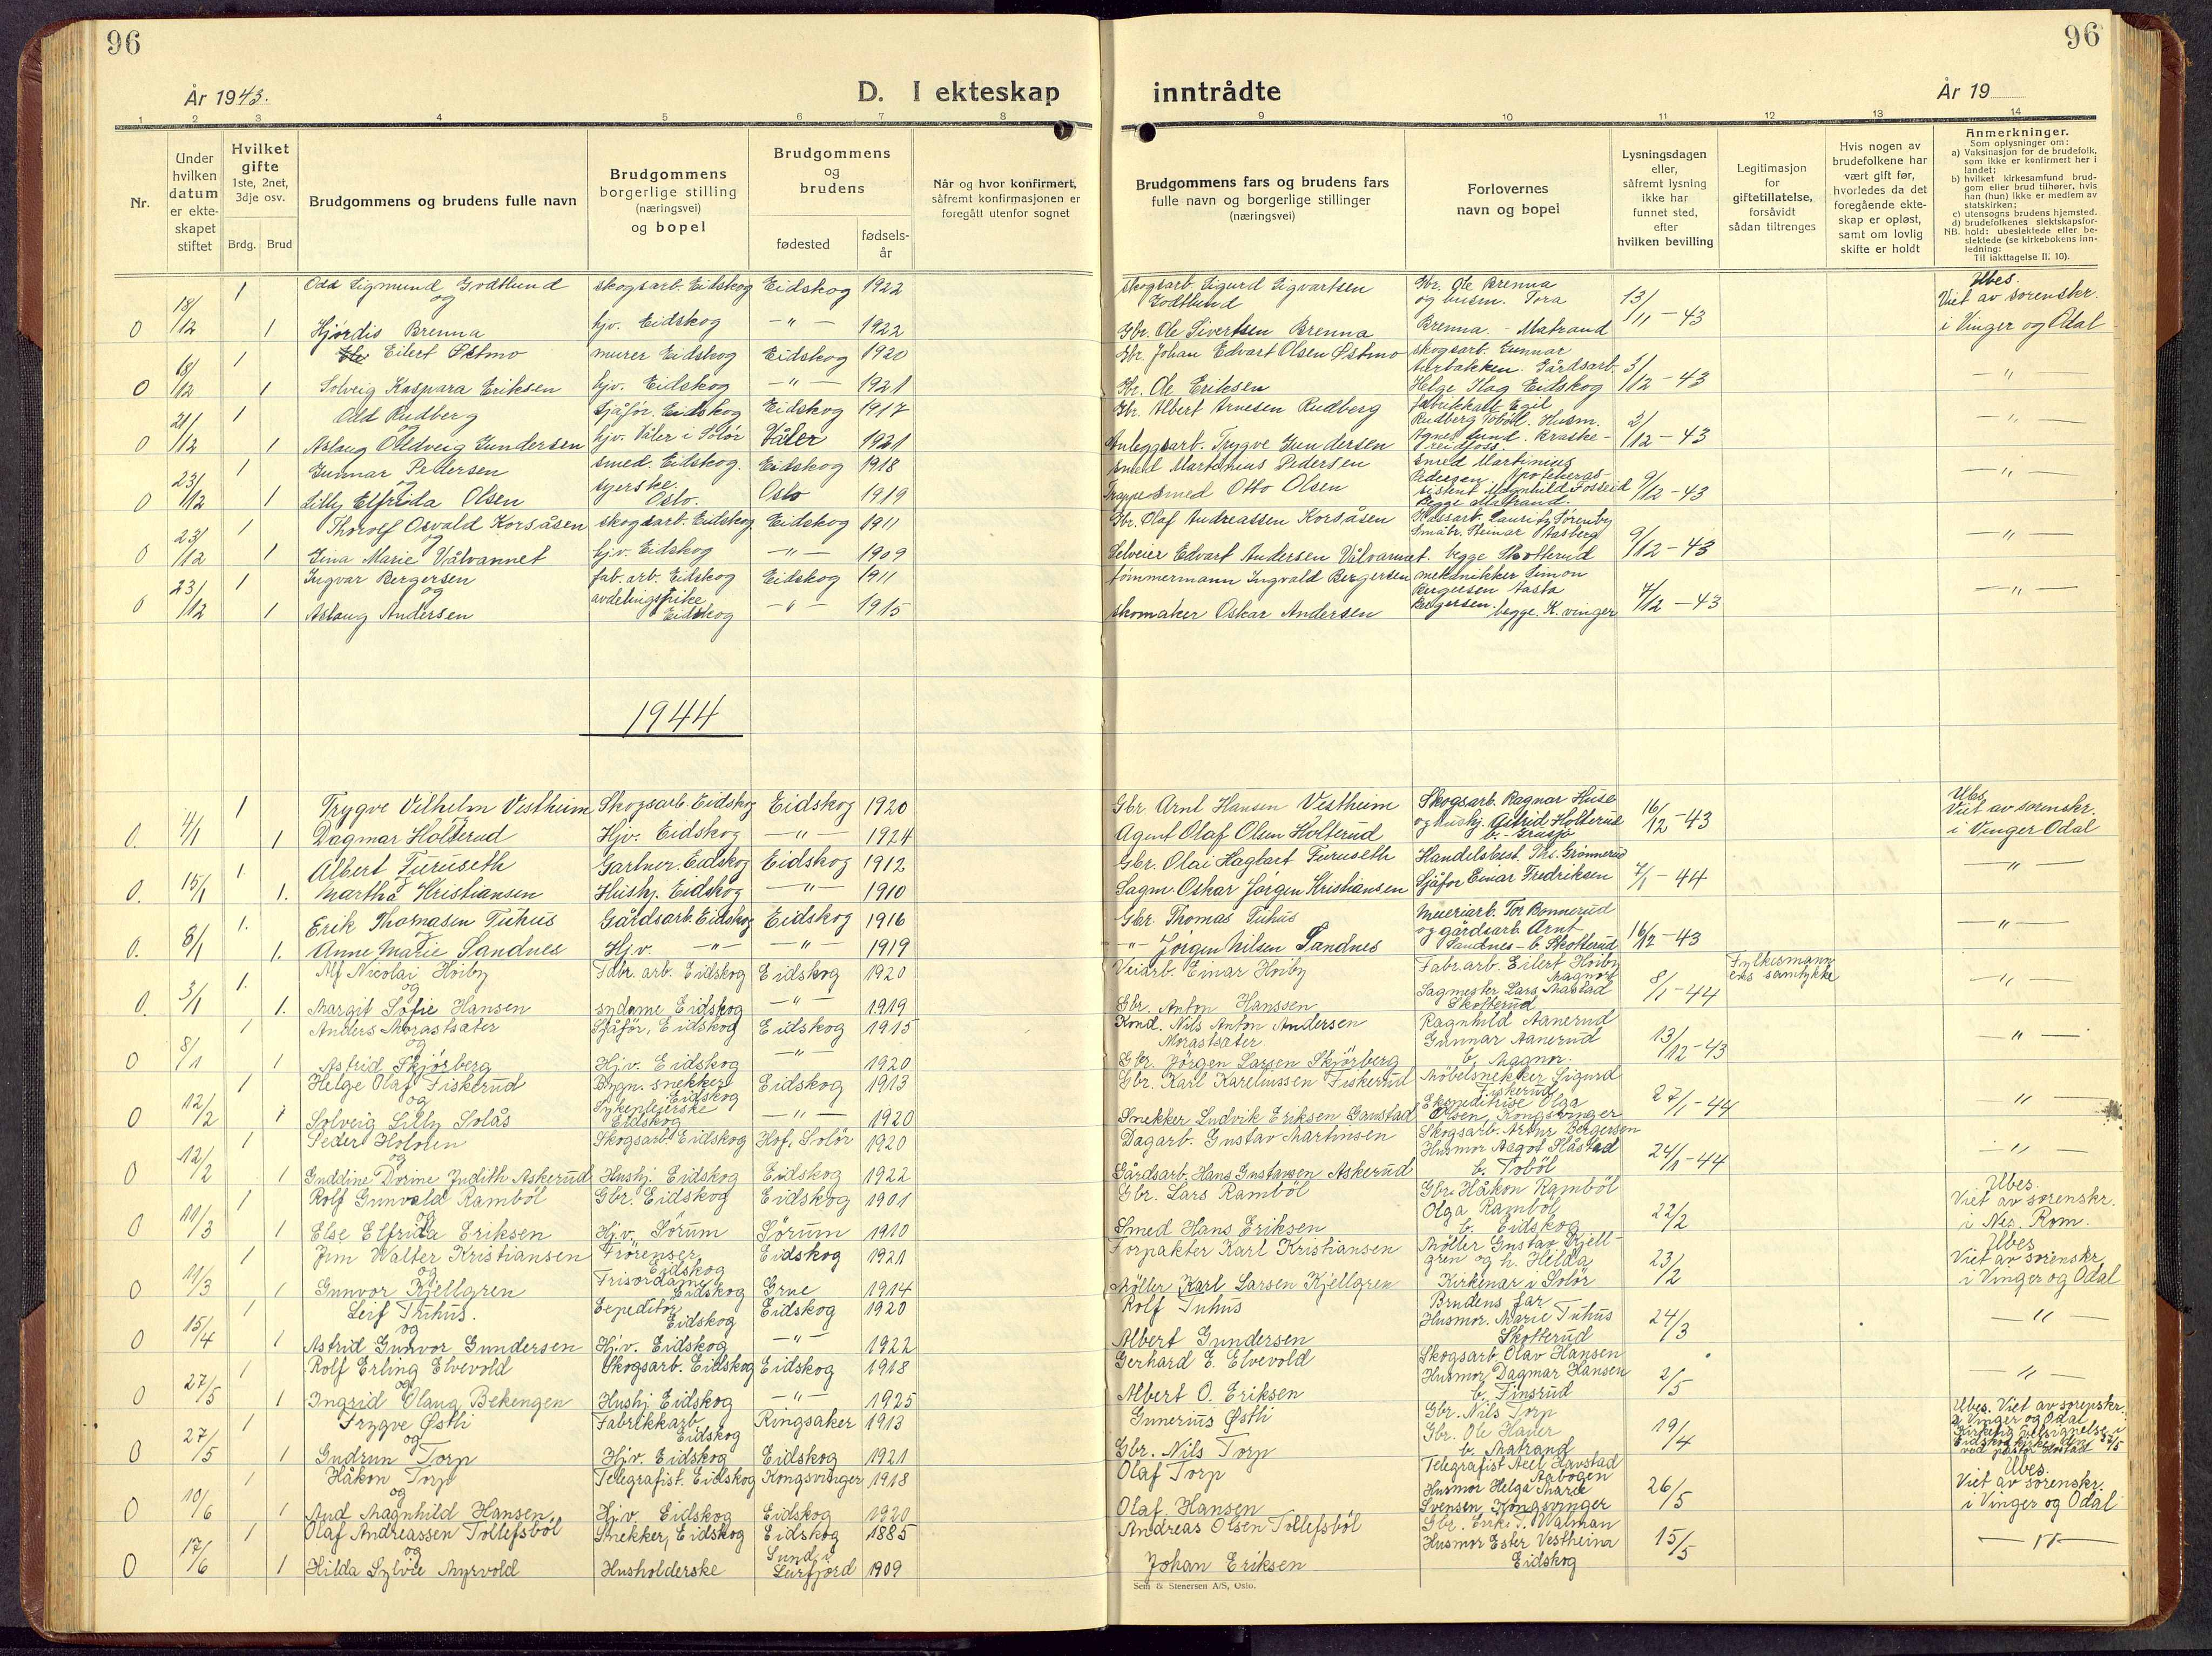 96
96
År 1943.
D. I ekteskap inntrådte
År 19
1 2 3 4 5 6 7 8 9 10 11 12 13 14
Nr.
Under hvilken datum er ekteskapet stiftet
Hvilket gifte 1ste, 2net, 3dje osv.
Brdg. Brud
Brudgommens og brudens fulle navn
Brudgommens borgerlige stilling (næringsvei) og bopel
Brudgommens og brudens
fødested
fødsels-år
Når og hvor konfirmert, såfremt konfirmasjonen er foregått utenfor sognet
Brudgommens fars og brudens fars fulle navn og borgerlige stillinger (næringsvei)
Forlovernes navn og bopel
Lysningsdagen eller, såfremt lysning ikke har funnet sted, efter hvilken bevilling
Legitimasjon for giftetillatelse, forsåvidt sådan tiltrenges
Hvis nogen av brudefolkene har vært gift før, hvorledes da det foregående ekteskap er opløst, samt om lovlig skifte er holdt
Anmerkninger.
Som oplysninger om:
a) Vaksinasjon for de brudefolk, som ikke er konfirmert her i landet;
b) hvilket kirkesamfund brudgom eller brud tilhører, hvis han (hun) ikke er medlem av statskirken;
c) utensogns brudens hjemsted.
d) brudefolkenes slektskapsforhold: ubeslektede eller beslektede (se kirkebokens innledning:
NB. Til iakttagelse II, 10).
18/12 1 Odd Sigmund Godtlund skogsarb. Eidskog Eidskog 1922 skogsarb. Sigurd Sigvartsen Godtlund Gbr. Ole Brenna og husm. Tora 13/11-43 Ubes. Viet av sorenskr.
0 og 1 Hjørdis Brenna hjv. Eidskog -"- 1922 Gbr. Ole Sivertsen Brenna Brenna. - Matrand i Vinger og Odal
18/12 1 Eilert Østmo murer Eidskog Eidskog 1920 Gbr. Johan Edvart Olsen Østmo skogsarb. Gunnar 3/12-43 -"-
0 1 Solveig Kaspara Eriksen hjv. Eidskog -"- 1921 Gbr. Ole Eriksen Gårdsarb. Helge Eidskog
21/12 1 Odd Rudberg Sjåfør. Eidskog Eidskog 1917 Gbr. Albert Arnesen Rudberg fabrikkarb. Egil Rudberg Tobøl. Husm. 2/12-43 -"-
0 og 1 Aslaug Oldveig Gundersen hjv. Våler i Solør Våler 1921 Anleggsarb. Trygve Gundersen Agnes Lund.
23/12 1 Gunnar Pedersen smed. Eidskog. Eidskog 1918 smed Martinius Pedersen smed Martinius Pedersen 9/12-43 -"-
0 og 1 Lilly Elfrida Olsen syerske. Oslo. Oslo 1919 Trappesmed Otto Olsen begge Matrand.
23/12 1 Thorolf Osvald Korsåsen skogsarb. Eidskog Eidskog 1911 Gbr. Olaf Andreassen Korsåsen Lauritz Sørenby 9/12-43 -"-
0 og 1 Gina Marie Vålvannet hjv. Eidskog -"- 1909 Selveier Edvart Andersen Vålvannet Småbr. Steinar Aasberg begge Skotterud
23/12 1 Ingvar Bergersen fab. arb. Eidskog Eidskog 1911 tømmermann Ingvald Bergersen mekanikker Simon Bergersen 7/12-43 -"-
0 og 1 Aslaug Andersen Eidskog -"- 1915 skomaker Oskar Andersen Bergersen. begge. K. vinger
1944
4/1 1 Trygve Vilhelm Vestheim Skogsarb. Eidskog Eidskog 1920 Gbr Arnt Hansen Vestheim Skogsarb. Ragnar Huse 16/12-43 Ubes Viet av sorenskr.
0. 1 Dagmar Holterud Hjv. Eidskog -"- 1924 Agent Olaf Olsen Holterud og hushj. Astrid Holterud i Vinger Odal
15/1 1. Albert Furuseth Gartner. Eidskog Eidskog 1912 Gbr. Olai Hagbart Furuseth Handelsbest. Ths. Grønnerud 7/1-44 -"-
0. 1. Martha Kristiansen Hushj. Eidskog -"- 1910 Sagm. Oskar Jørgen Kristiansen Sjåfør Einar Fredriksen
8/1 1. Erik Thomasen Tuhus Gårdsarb. Eidskog Eidskog 1916 Gbr. Thomas Tuhus Meieriarb. Tor Bonnerud 16/12-43 -"-
0. 1. Anne Marie Sandnes Hj.v. -"- -"- 1919 -"- Jørgen Nilsen Sandnes og gårdsarb. Arnt Sandnes - b. Skotterud
3/1 1. Alf Nicolai Høiby Fabr. arb. Eidskog Eidskog 1920 Veiarb. Einar Høiby Fabr. arb. Eilert Høiby Magnor 8/1-44 Fylkesmannens samtykke -"-
0. og 1. Margit Sofie Hansen sydame Eidskog -"- 1919 Gbr. Anton Hanssen Sagmester Lars Mastad Skotterud
8/1 1 Anders Morastsæter Sjåfør, Eidskog Eidskog 1915 Kond. Nils Anton Andersen Morastsæter. Ragnhild Aanerud 13/12-43 -"-
0 og 1 Astrid Skjørberg Hj.v. Eidskog -"- 1920 Gbr. Jørgen Larsen Skjørberg Gunnar Aanerud b. Magnor.
12/2 1 Helge Olaf Fiskerud Bygn. snekker Eidskog Eidskog 1913 Gbr. Karl Kareliussen Fiskerud Møbelsnekker Sigurd Fiskerud 27/1-44 -"-
0 og 1 Solveig Lilly Solås Sykepleierske Eidskog -"- 1920 Snekker Ludvik Eriksen Gaustad Ekspeditrise Olga Olsen, Kongsvinger
12/2 1 Peder Holmen Skogsarb. Eidskog Hof, Solør 1920 Dagarb. Gustav Martinsen Skogsarb. Artur Bergersen 24/1-44 -"-
0 og 1 Guddine Dorine Judith Askerud Hushj. Eidskog Eidskog 1922 Gårdsarb. Hans Gustavsen Askerud Husmor Aagot Slåstad b. Tobøl
11/3 1 Rolf Gunvald Rambøl Gbr. Eidskog Eidskog 1901 Gbr. Lars Rambøl Gbr. Håkon Rambøl 22/2 Ubes. Viet av sorenskr.
0 og 1 Else Elfrida Eriksen Hj.v. Sørum Sørum 1910 Smed Hans Eriksen Olga Rambøl b. Eidskog i Nes. Rom.
11/3 1 Jim Walter Kristiansen Eidskog Eidskog 1921 Forpakter Karl Kristiansen Møller Gustav Kjellgren og h. Hilda 23/2 Ubes Viet av sorenskr
0 og 1 Gunvor Kjellgren Frisørdame Eidskog Grue 1914 Møller Karl Larsen Kjellgren Kirkenær i Solør i Vinger og Odal
15/4 1 Leif Tuhus. Expeditør Eidskog Eidskog 1920 Rolf Tuhus Brudens far 24/3 -"-
0 og 1 Astrid Gunvor Gundersen Hj.v. Eidskog -"- 1922 Albert Gundersen Husmor. Marie Tuhus Skotterud
27/5 1 Rolf Erling Elvevold Skogsarb. Eidskog Eidskog 1918 Gerhard E. Elvevold Skogsarb. Olav Hansen 2/5 -"-
0 og 1 Ingrid Olaug Bekengen Hushj. Eidskog -"- 1925 Albert O. Eriksen Husmor Dagmar Hansen b. Finsrud
27/5 1 Trygve Østli Fabrikkarb. Eidskog Ringsaker 1913 Gunerius Østli Gbr. Nils Torp 19/4 Ubes. Viet av sorenskr. i Vinger og Odal
0 og 1 Gudrun Torp Hj.v. Eidskog Eidskog 1921 Gbr. Nils Torp Gbr. Ole Hauer b. Matrand Kirkelig velsignelse i Eidskog kirke den
10/6 1 Håkon Torp Telegrafist. Eidskog Kongsvinger 1918 Olaf Torp Telegrafist Axel Havstad Aabogen 26/5 Ubes. Viet av sorenskr.
0 og 1 Aud Magnhild Hansen Hj.v Eidskog Eidskog 1920 Olaf Hansen Husmor Helga Marie Svensen, Kongsvinger i Vinger og Odal
17/6 1 Olaf Andreassen Tollefsbøl Snekker, Eidskog Eidskog 1885 Andreas Olsen Tollefsbøl Gbr. Erik T. Walman 15/5 -"-
0 og 1 Hilda Sylvie Myrvold Husholderske Leirfjord 1909 Johan Eriksen Husmor Ester Vestheim Eidskog
Sem & Stenersen A/S, Oslo.